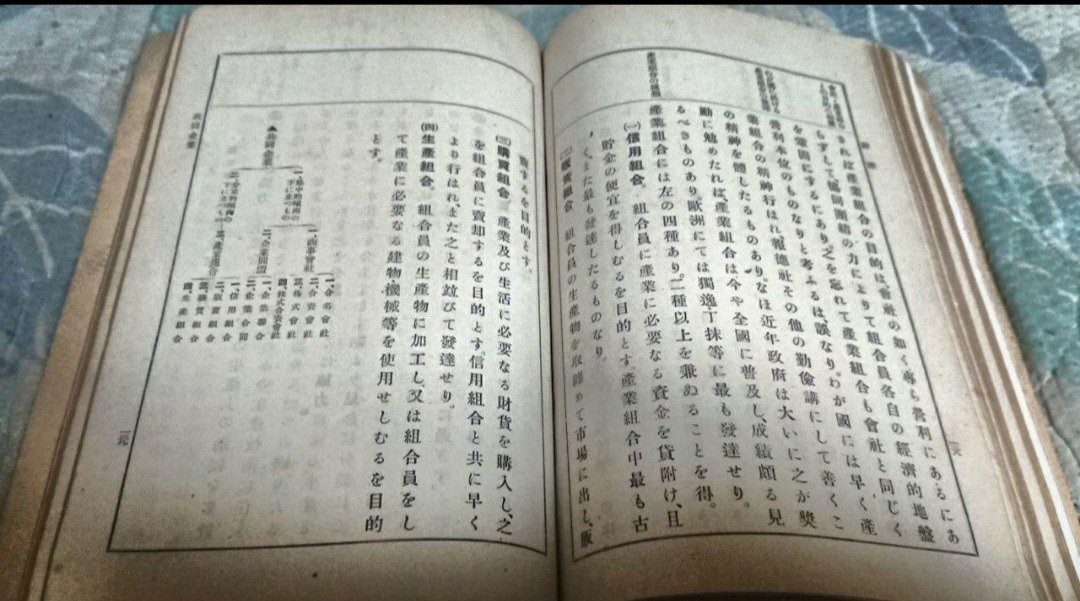 産業組合の種類
されば産業組合の目的は、會社の如く專ら營利にあるにあ
らずして、協同團結の力によりて組合員各自の經濟的地盤
を鞏固にするにあり。之を忘れて産業組合も會社と同じく
營利本位のものなりと考ふるは誤なり。わが國には早く産
業組合の精神行はれ、報德社その他の勤儉講にして善くこ
の精神を體したるものあり。なほ近年政府は大いに之が奬
勵に勉めたれば、産業組合は今や全國に普及し、成績頗る見
るべきものあり。歐洲にては獨逸丁抹等に最も發達せり。
産業組合には左の四種あり。二種以上を兼ぬることを得。
㈠信用組合。組合員に産業に必要なる資金を貸附け、且
貯金の便宜を得しむるを目的とす。産業組合中最も古
く、また最も發達したるものなり。
㈡販賣組合 組合員の生産物を取纒めて市場に出し、販
賣するを目的とす。
㈢購買組合 産業及び生活に必要なる財貨を購入し、之
を組合員に賣却するを目的とす。信用組合と共に早く
より行はれ、また之と相竝びて發達せり。
㈣生産組合。組合員の生産物に加工し、又は組合員をし
て産業に必要なる建物機械等を使用せしむるを目的
とす。
▲共同企業
一、集中的傾向の下に立つもの
二、分立的傾向の下に立つもの
一、商事會社
二、企業同盟
三、産業組合
一、合名會社
二、合資會社
三、株式會社
四、株式合資會社
一、企業聯合
二、企業合同
一、信用組合
二、販賣組合
三、購買組合
四、生産組合
共同企業